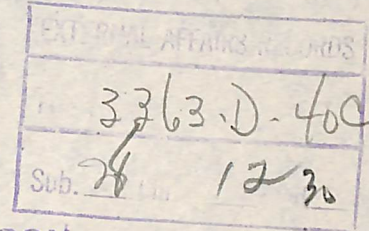 EXTERNAL AFFAIRS RECORDS
3363-D-40C
Sub. 28 12 30